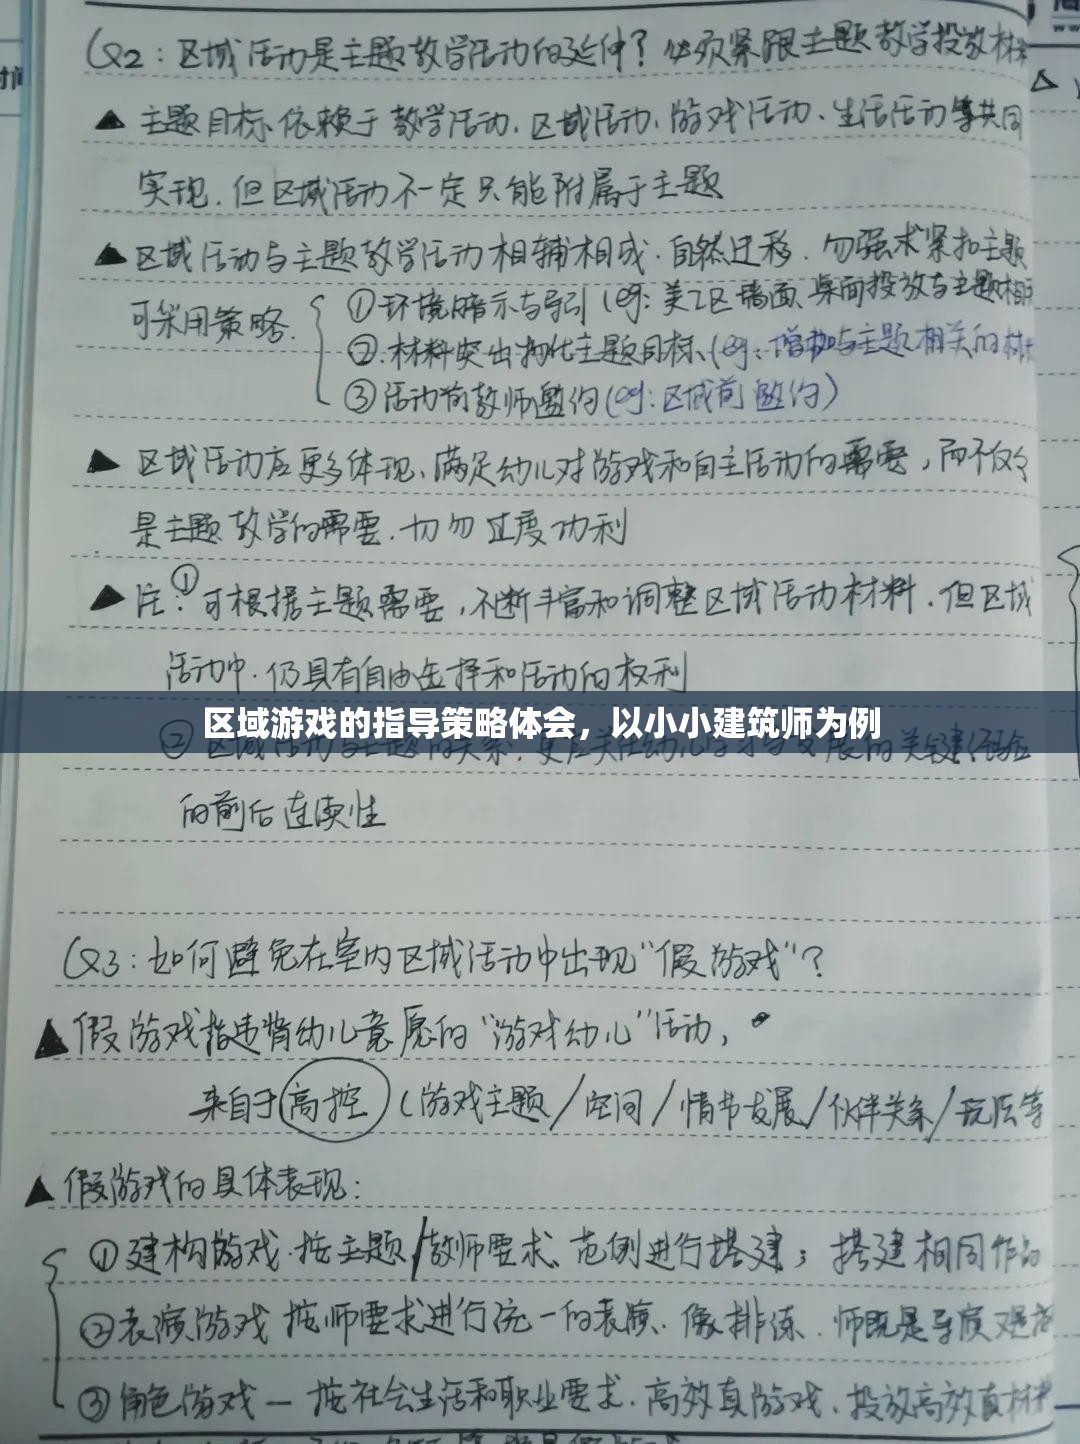 Q2：区域活动是主题教学活动的延伸？必须紧跟主题教学投放材
▲ 主题目标依赖于教学活动、区域活动、游戏活动、生活活动等共同
实现，但区域活动不一定只能附属于主题
▲ 区域活动与主题教学活动相辅相成，自然迁移，勿强求紧扣主题
可采用策略
①环境暗示与导引（eg：美工区墙面、桌面投放与主题相
②材料突出物化主题目标（eg：增加与主题相关的材
③活动前教师邀约（eg：区域前邀约）
▲ 区域活动应更多体现、满足幼儿对游戏和自主活动的需要，而不仅仅
是主题教学的需要，切勿过度功利
▲ 注：①可根据主题需要，不断丰富和调整区域活动材料，但区域
活动中，仍具有自由选择和活动的权利
区域游戏的指导策略体会，以小小建筑师为例
②区域活动与主题的关系，更应关注幼儿学习与发展的关键经验
的前后连续性
Q3：如何避免在室内区域活动中出现“假游戏”？
▲ 假游戏指违背幼儿意愿的“游戏幼儿”活动，
来自于高控（游戏主题/空间/情节发展/伙伴关系/玩法等
▲ 假游戏的具体表现：
①建构游戏 按主题/教师要求、范例进行搭建；搭建相同作品
②表演游戏 按师要求进行统一的表演、像排练，师既是导演又是
③角色游戏－按社会生活和职业要求，高效真游戏，投放高效真材